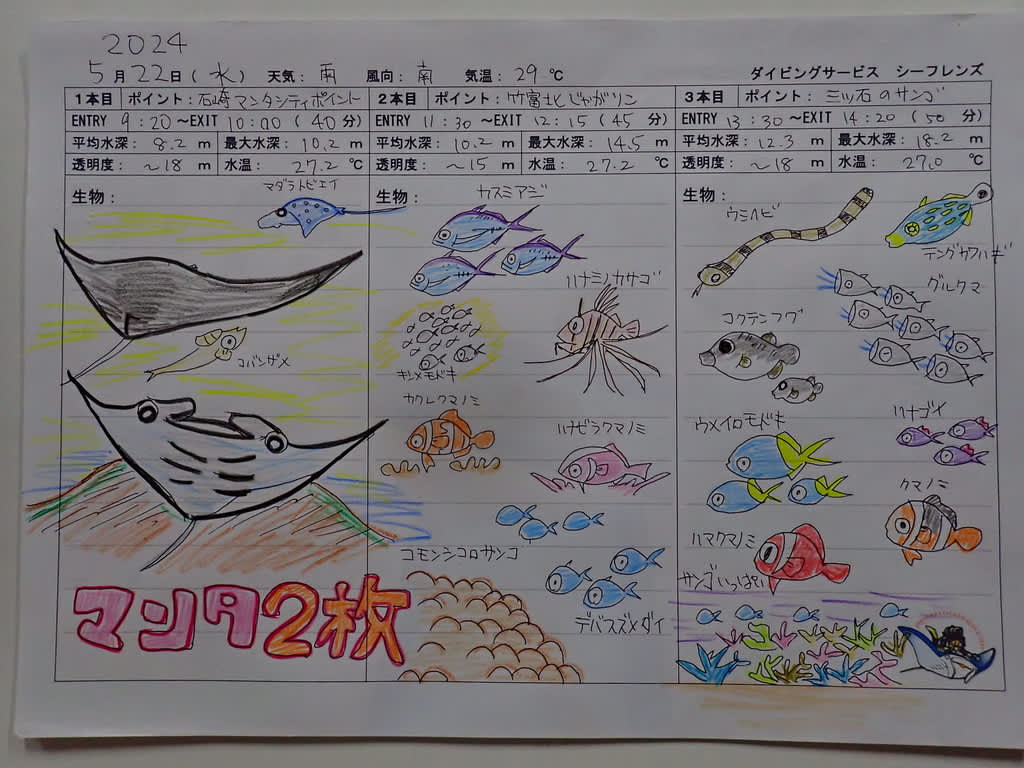 2024
5月22日(水) 天気: 雨 風向: 南 気温: 29℃ ダイビングサービス シーフレンズ
1本目 ポイント: 石崎マンタシティポイント
ENTRY 9:20 ～EXIT 10:00 (40分)
平均水深: 8.2 m 最大水深: 10.2 m
透明度: ～18 m 水温: 27.2 ℃
生物:
マダラトビエイ
コバンザメ
マンタ2枚
2本目 ポイント: 竹富北じゃがリコ
ENTRY 11:30 ～EXIT 12:15 (45分)
平均水深: 10.2 m 最大水深: 14.5 m
透明度: ～15 m 水温: 27.2 ℃
生物:
カスミアジ
ハナミノカサゴ
キンメモドキ
カクレクマノミ
ハナビラクマノミ
コモンシコロサンゴ
デバスズメダイ
3本目 ポイント: 三ッ石のサンゴ
ENTRY 13:30 ～EXIT 14:20 (50分)
平均水深: 12.3 m 最大水深: 18.2 m
透明度: ～18 m 水温: 27.0 ℃
生物:
ウミヘビ
テングカワハギ
グルクマ
コクテンフグ
ハナゴイ
ウメイロモドキ
クマノミ
ハマクマノミ
サンゴいっぱい